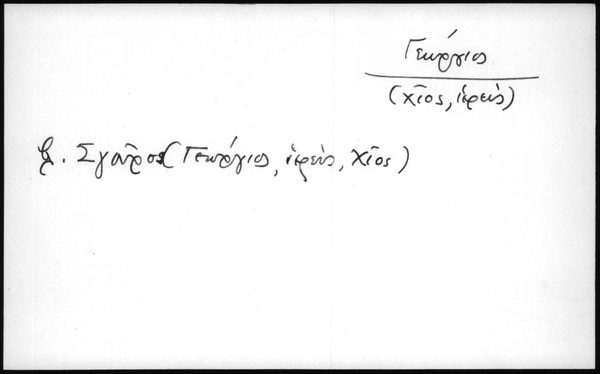 Γεώργιος
(χῖος, ἱερεύς)
Σγοῦρος (Γεώργιος, ἱερεύς, χῖος)